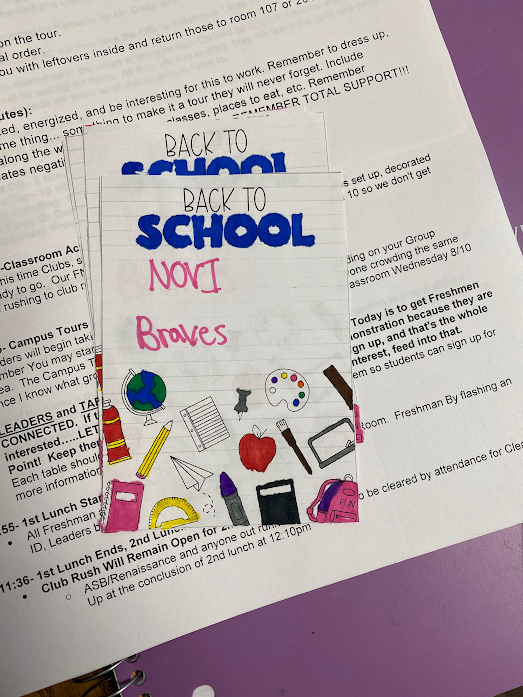 on the tour.
al order.
you with leftovers inside and return those to room 107 or 20
utes):
ed, energized, and be interesting for this to work. Remember to dress up,
me thing... something to make it a tour they will never forget. Include
along the w classes, places to eat, etc. Remember
ates negati REMEMBER TOTAL SUPPORT!!!
BACK TO
SCHOOL
BACK TO
SCHOOL
NOVI
Braves
s set up, decorated
10 so we don't get
-Classroom Ac
his time Clubs, s
dy to go. Our FN
rushing to club r
ding on your Group
one crowding the same
assroom Wednesday 8/10
- Campus Tours
ders will begin taki
mber You may star
ea. The Campus T
nce I know what gro
Today is to get Freshmen
onstration because they are
gn up, and that's the whole
nterest, feed into that.
m so students can sign up for
LEADERS and TAR
CONNECTED. If t
interested.....LET
Point! Keep them
Each table shoul
more information
Room. Freshman By flashing an
:55- 1st Lunch Sta
All Freshman
ID, Leaders
o be cleared by attendance for Clea
11:36- 1st Lunch Ends, 2nd Lunc
Club Rush Will Remain Open for 2
ASB/Renaissance and anyone out run
Up at the conclusion of 2nd lunch at 12:10pm